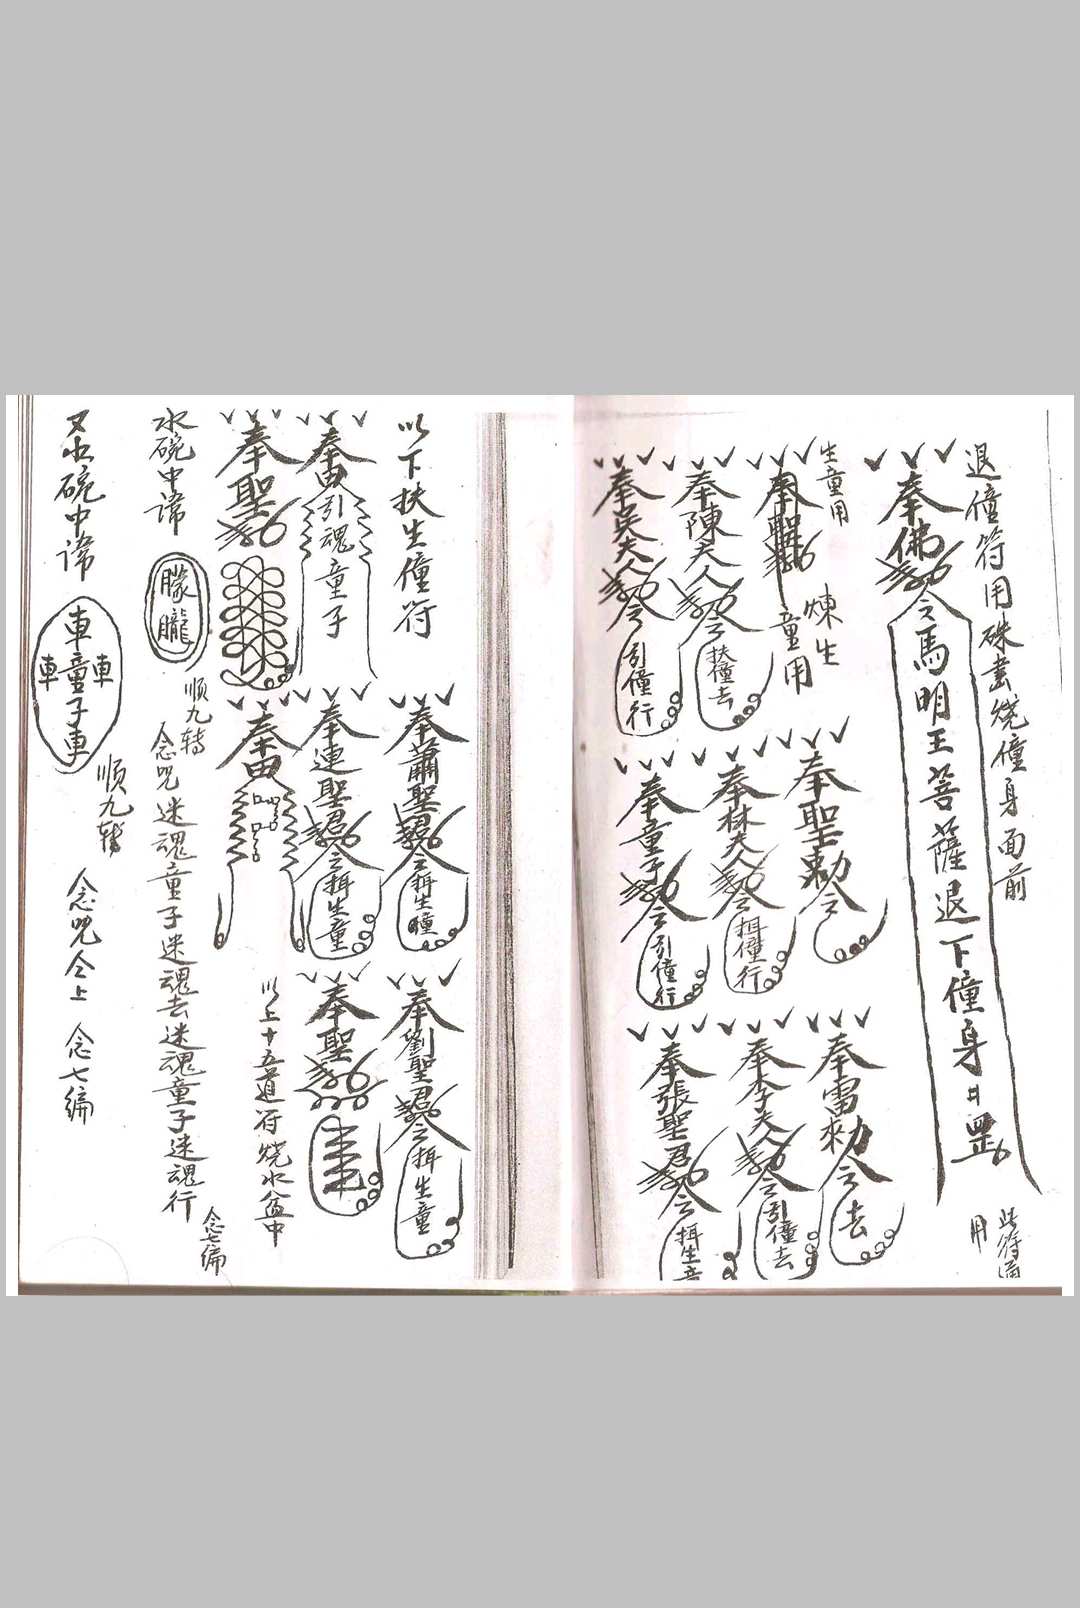 退僮符用硃書燒僮身面前
奉佛勅令馬明王菩薩退下僮身罡
此符
用
生童用
煉生
童用
奉聖勅令
奉雷勅令去
奉陳夫人勅令扶僮去
奉林夫人勅令揖僮行
奉李夫人勅令引僮去
奉吳夫人勅令引僮行
奉童子勅令引僮行
奉張聖君勅令揖生童
以下扶生僮符
奉蕭聖君勅令揖生瞳
奉劉聖君勅令揖生童
引魂童子
奉連聖君勅令揖生童
奉聖勅
奉聖勅
奉雷
以上十五道符燒水盆中
水碗中諱
朦朧
順九转
念咒迷魂童子迷魂去迷魂童子迷魂行
念七编
又水碗中諱
車童子車
車
車
順九轉
念咒仝上
念七编